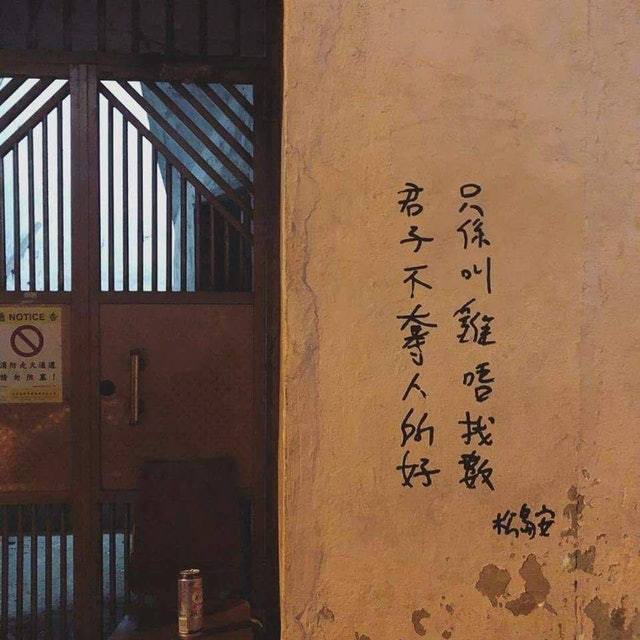 只係叫雞唔找數
君子不奪人所好
通 NOTICE 告
消防走火通道
請勿阻塞！